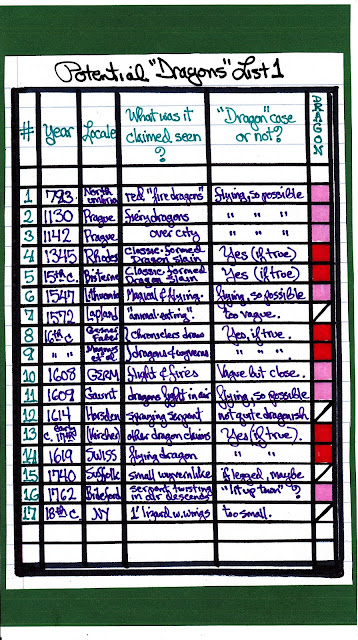 Potential "Dragons" List 1
# Year Locale What was it claimed seen? "Dragon" case or not? DRAGON
1 793 Northumbria red "fire dragons" flying, so possible
2 1130 Prague fiery dragons " " "
3 1142 Prague over city " " "
4 1345 Rhodes Classic-formed Dragon slain Yes (if true)
5 15th c. Bisterne Classic-formed Dragon slain Yes (if true)
6 1547 Lithuania Magical & flying. flying, so possible
7 1572 Lapland "animal-eating". too vague.
8 16th c. Gesner Chroniclers draw Yes, if true.
9 " " et al dragons & wyverns " " "
10 1608 GERM flight & fires Vague but close.
11 1609 dragons fight in air flying, so possible
12 1614 Horsden spraying serpent not quite dragonish
13 early c. 17th (Kircher) other dragon claims Yes (if true).
14 1619 SWISS flying dragon " "
15 1740 Suffolk small wyvernlike if legged, maybe
16 1762 Bideford serpent twisting in air descends "lit up town" ?
17 18th c. NY 1' lizard w. wings too small.